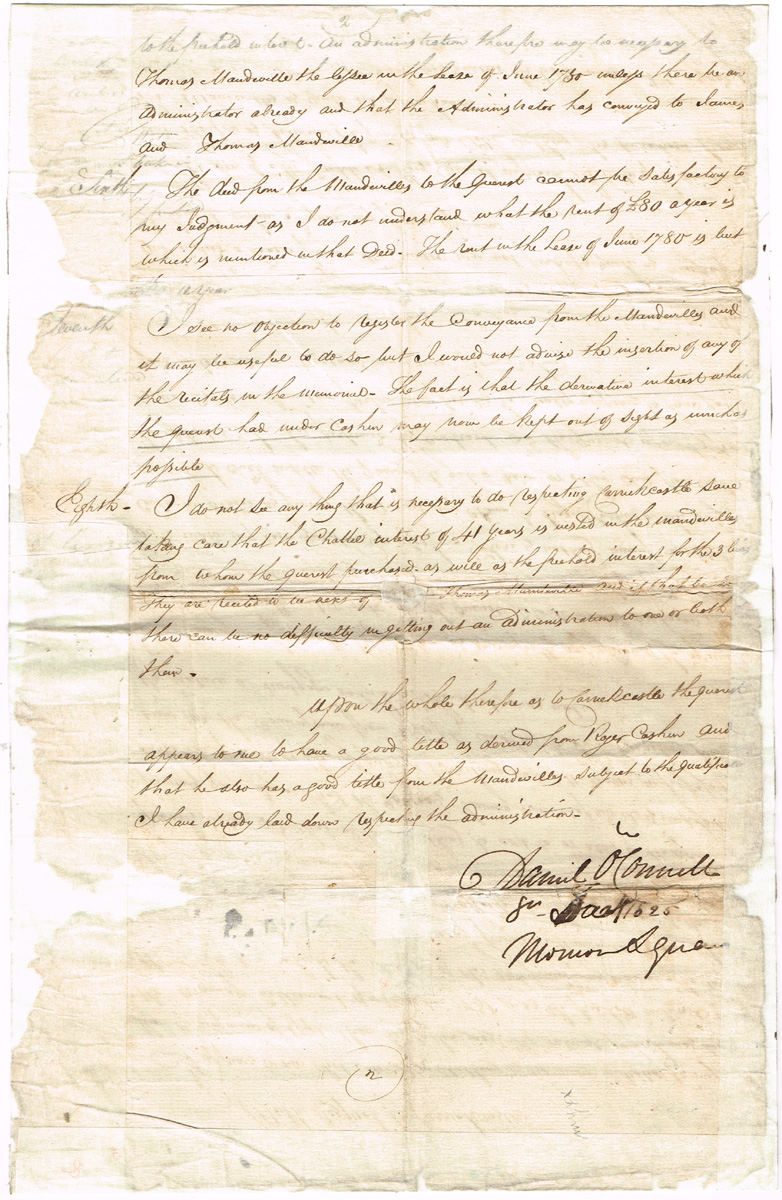 2
to the freehold interest. An administration therefore may be necessary to
Thomas Mandeville the lessee in the Lease of June 1780 unless there be an
administrator already and that the Administrator has conveyed to James
and Thomas Mandeville
Sixth
The deed from the Mandevilles to the Querist cannot be satisfactory to
my Judgment as I do not understand what the rent of £80 a year is
which is mentioned in that Deed. The rent in the Lease of June 1780 is but
a year
Seventh
I see no objection to register the Conveyance from the Mandevilles and
it may be useful to do so but I would not advise the insertion of any of
the recitals in the Memorial. The fact is that the derivative interest which
the querist had under Cashin may now be kept out of sight as much as
possible
Eighth - I do not see any thing that is necessary to do respecting Carrickcastle save
taking care that the Chattel interest of 41 years is vested in the Mandevilles
from whom the querist purchased as well as the freehold interest for the 3 lives
They are recited to be next of Thomas Mandeville and if that be so
there can be no difficulty in getting out an Administration to one or both
them.
Upon the whole therefore as to Carrickcastle the querist
appears to me to have a good title as derived from Roger Cashin and
that he also has a good title from the Mandevilles subject to the
I have already laid down respecting the administration.
Daniel O'Connell
1825
Merrion Square
2